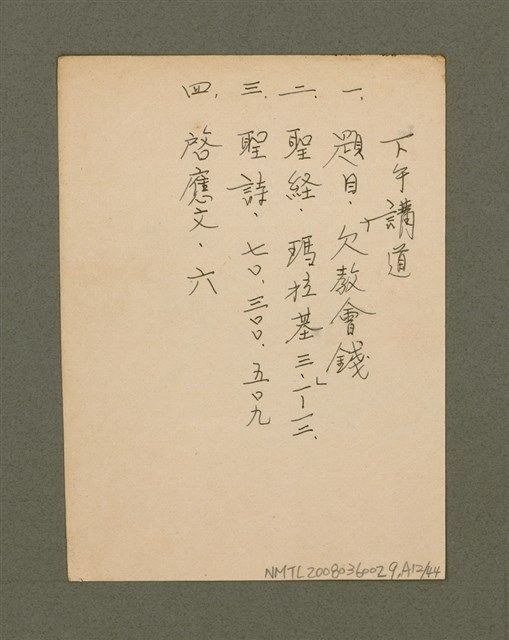 下午講道
一、題目.「欠教會錢」
二、聖経.瑪拉基三.一-一二.
三、聖詩.七〇.三〇〇.五〇九
四、啓應文.六
NMTL20080360029,A12/44